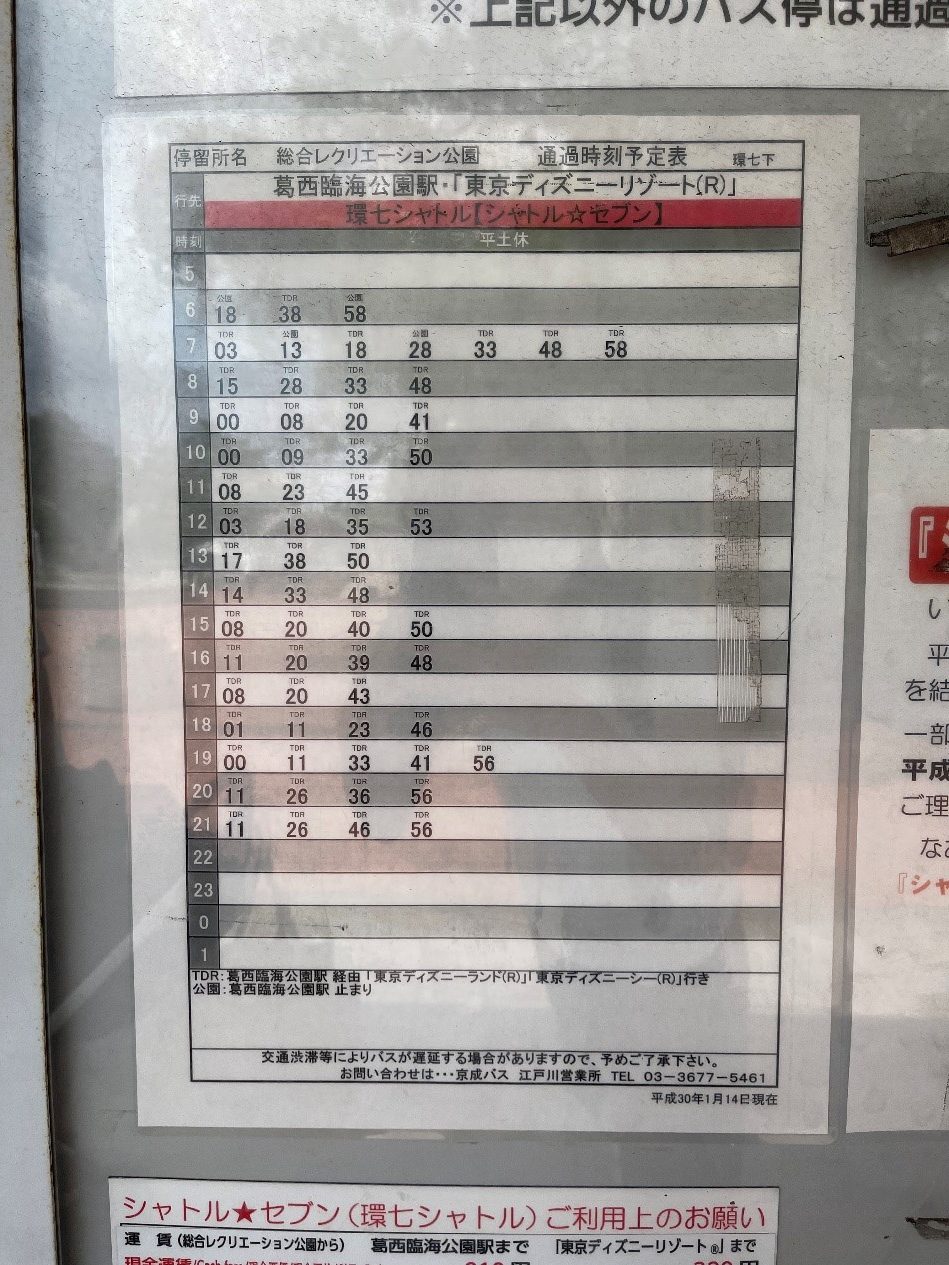 ※上記以外のバス停は通過
停留所名 総合レクリエーション公園 通過時刻予定表 環七下
行先 葛西臨海公園駅・「東京ディズニーリゾート(R)」
環七シャトル【シャトル☆セブン】
時刻 平土休
5
公園 TDR 公園
6 18 38 58
TDR 公園 TDR 公園 TDR TDR TDR
7 03 13 18 28 33 48 58
TDR TDR TDR TDR
8 15 28 33 48
TDR TDR TDR TDR
9 00 08 20 41
TDR TDR TDR TDR
10 00 09 33 50
TDR TDR TDR
11 08 23 45
TDR TDR TDR TDR
12 03 18 35 53
TDR TDR TDR
13 17 38 50
TDR TDR TDR
14 14 33 48
TDR TDR TDR TDR
15 08 20 40 50
TDR TDR TDR TDR
16 11 20 39 48
TDR TDR TDR
17 08 20 43
TDR TDR TDR TDR
18 01 11 23 46
TDR TDR TDR TDR TDR
19 00 11 33 41 56
TDR TDR TDR TDR
20 11 26 36 56
TDR TDR TDR TDR
21 11 26 46 56
22
23
0
1
TDR:葛西臨海公園駅 経由 「東京ディズニーランド(R)」「東京ディズニーシー(R)」行き
公園:葛西臨海公園駅 止まり
交通渋滞等によりバスが遅延する場合がありますので、予めご了承下さい。
お問い合わせは・・・京成バス 江戸川営業所 TEL 03-3677-5461
平成30年1月14日現在
い
平
を結
一部
平成
ご理
なお
『シャ
シャトル★セブン(環七シャトル)ご利用上のお願い
運 賃(総合レクリエーション公園から) 葛西臨海公園駅まで 「東京ディズニーリゾート®」まで